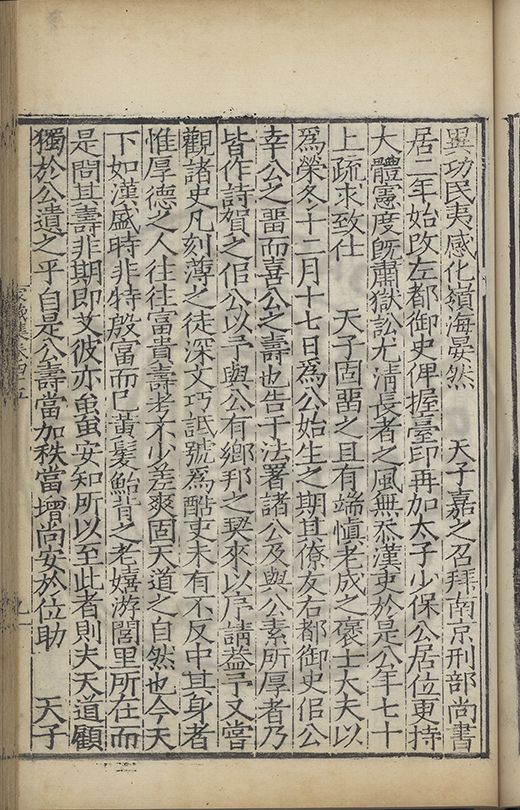 異功民夷感化嶺海晏然　天子嘉之召拜南京刑部尚書
居二年始改左都御史俾握臺印再加太子少保公居位更持
大體憲度旣肅獄訟尤淸長者之風無忝漢吏於是公年七十
上疏求致仕　天子固畱之且有端愼老成之褒士大夫以
爲榮冬十二月十七日爲公始生之期其僚友右都御史佀公
幸公之畱而喜公之壽也告于法署諸公及與公素所厚者乃
皆作詩賀之佀公以予與公有鄉邦之契來以序請葢予又嘗
觀諸史凡刻薄之徒深文巧詆號爲酷吏未有不反中其身者
惟厚德之人往往富貴壽考不少差爽固天道之自然也今天
下如漢盛時非特殷富而已黃髮鮐背之老嬉游閭里所在而
是問其壽非期即艾彼亦蚩蚩安知所以至此者則夫天道顧
獨於公遺之乎自是公壽當加秩當增尚安於位助　天子
家藏集卷四十五
九